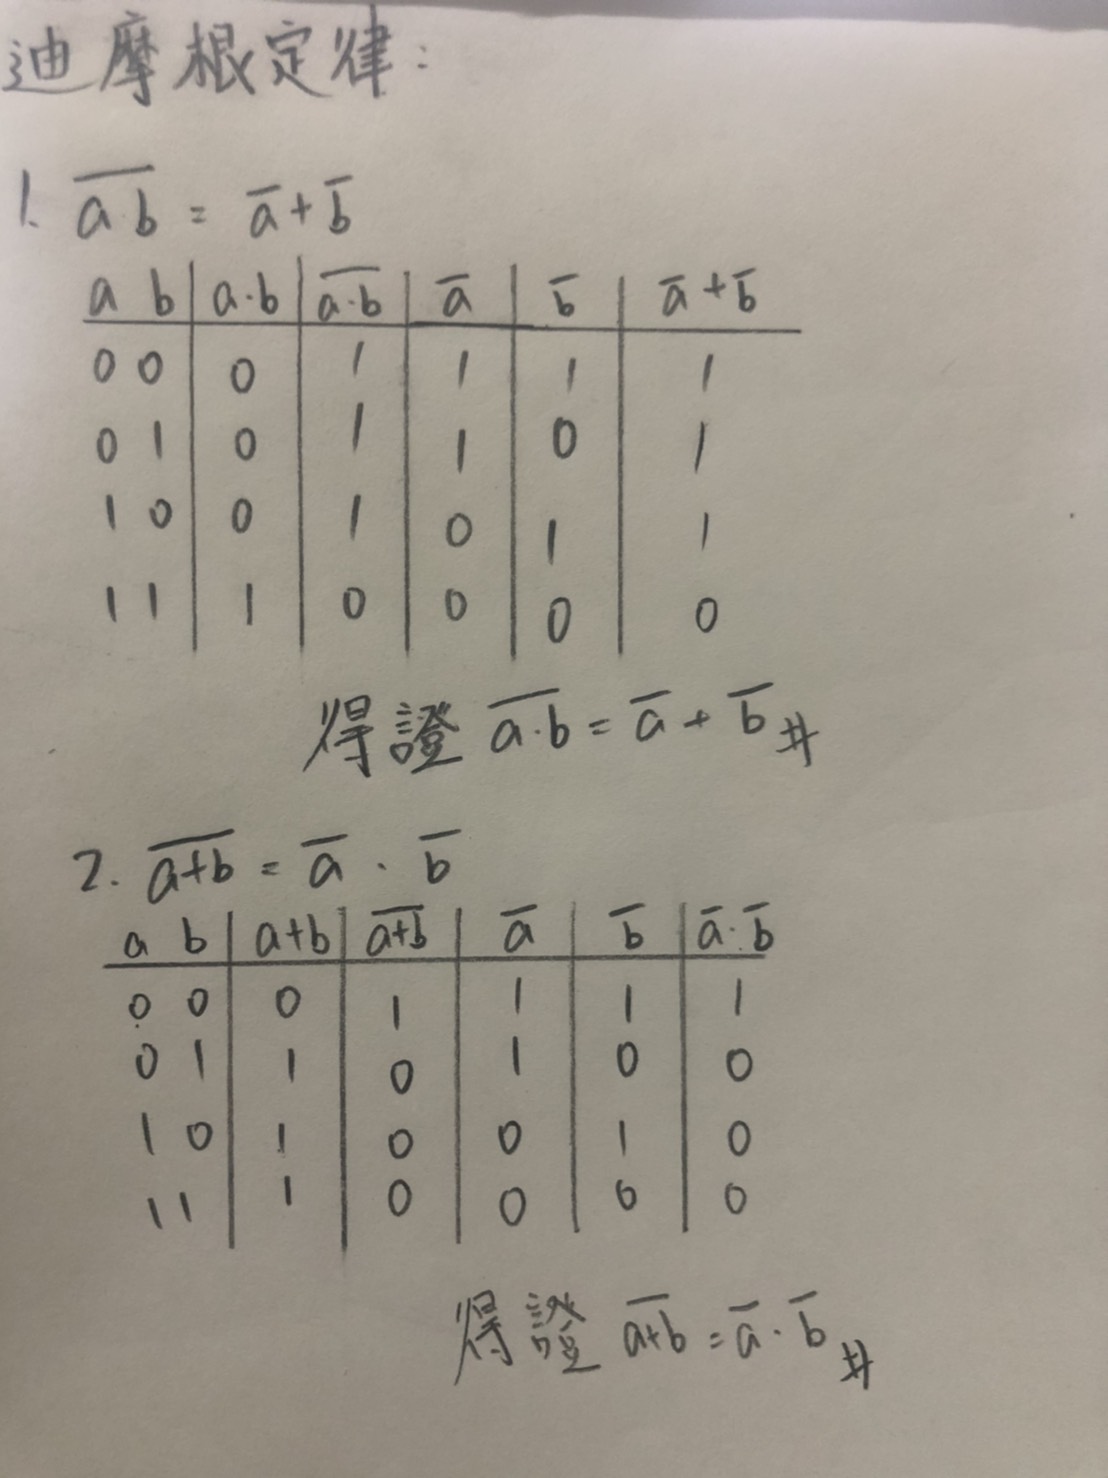 迪摩根定律:
1. \overline{a·b} = \overline{a} + \overline{b}
a b | a·b | \overline{a·b} | \overline{a} | \overline{b} | \overline{a} + \overline{b}
0 0 | 0 | 1 | 1 | 1 | 1
0 1 | 0 | 1 | 1 | 0 | 1
1 0 | 0 | 1 | 0 | 1 | 1
1 1 | 1 | 0 | 0 | 0 | 0
得證 \overline{a·b} = \overline{a} + \overline{b} #
2. \overline{a+b} = \overline{a} · \overline{b}
a b | a+b | \overline{a+b} | \overline{a} | \overline{b} | \overline{a}·\overline{b}
0 0 | 0 | 1 | 1 | 1 | 1
0 1 | 1 | 0 | 1 | 0 | 0
1 0 | 1 | 0 | 0 | 1 | 0
1 1 | 1 | 0 | 0 | 0 | 0
得證 \overline{a+b} = \overline{a}·\overline{b} #